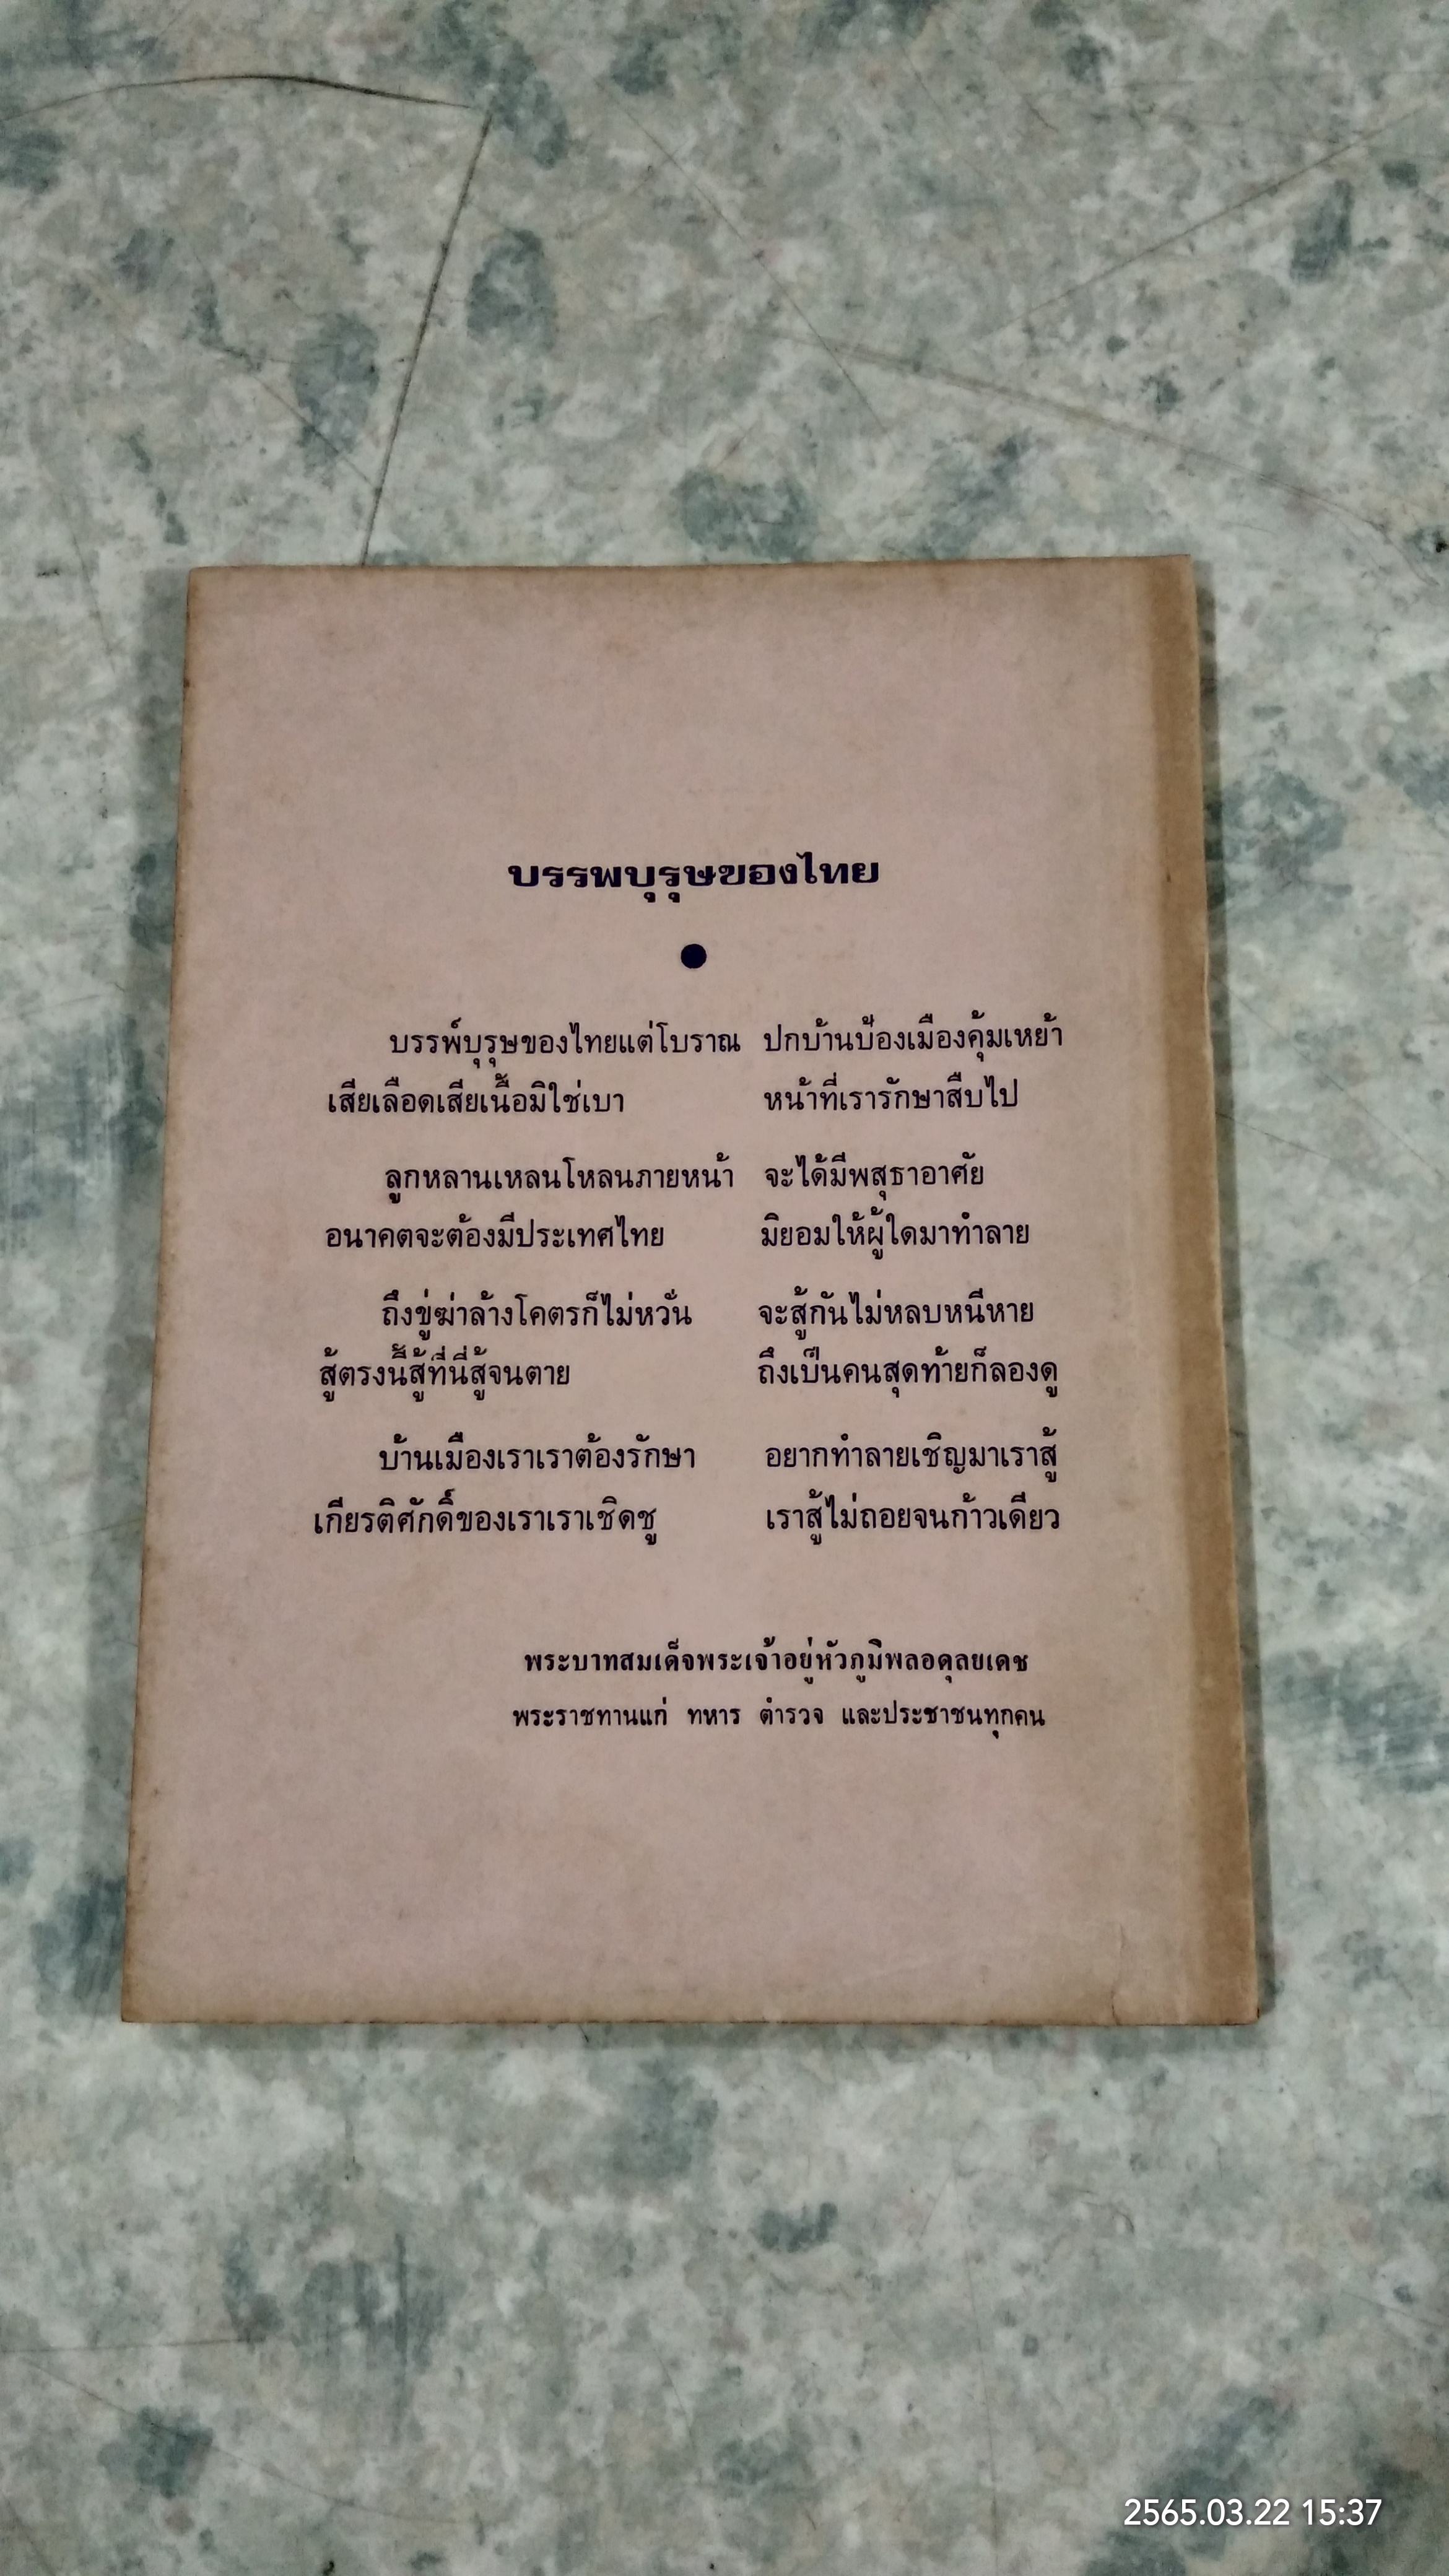 บรรพบุรุษของไทย
●
บรรพ์บุรุษของไทยแต่โบราณ ปกบ้านป้องเมืองคุ้มเหย้า
เสียเลือดเสียเนื้อมิใช่เบา หน้าที่เรารักษาสืบไป
ลูกหลานเหลนโหลนภายหน้า จะได้มีพสุธาอาศัย
อนาคตจะต้องมีประเทศไทย มิยอมให้ผู้ใดมาทำลาย
ถึงขู่ฆ่าล้างโคตรก็ไม่หวั่น จะสู้กันไม่หลบหนีหาย
สู้ตรงนี้สู้ที่นี่สู้จนตาย ถึงเป็นคนสุดท้ายก็ลองดู
บ้านเมืองเราเราต้องรักษา อยากทำลายเชิญมาเราสู้
เกียรติศักดิ์ของเราเราเชิดชู เราสู้ไม่ถอยจนก้าวเดียว
พระบาทสมเด็จพระเจ้าอยู่หัวภูมิพลอดุลยเดช
พระราชทานแก่ ทหาร ตำรวจ และประชาชนทุกคน
2565.03.22 15:37